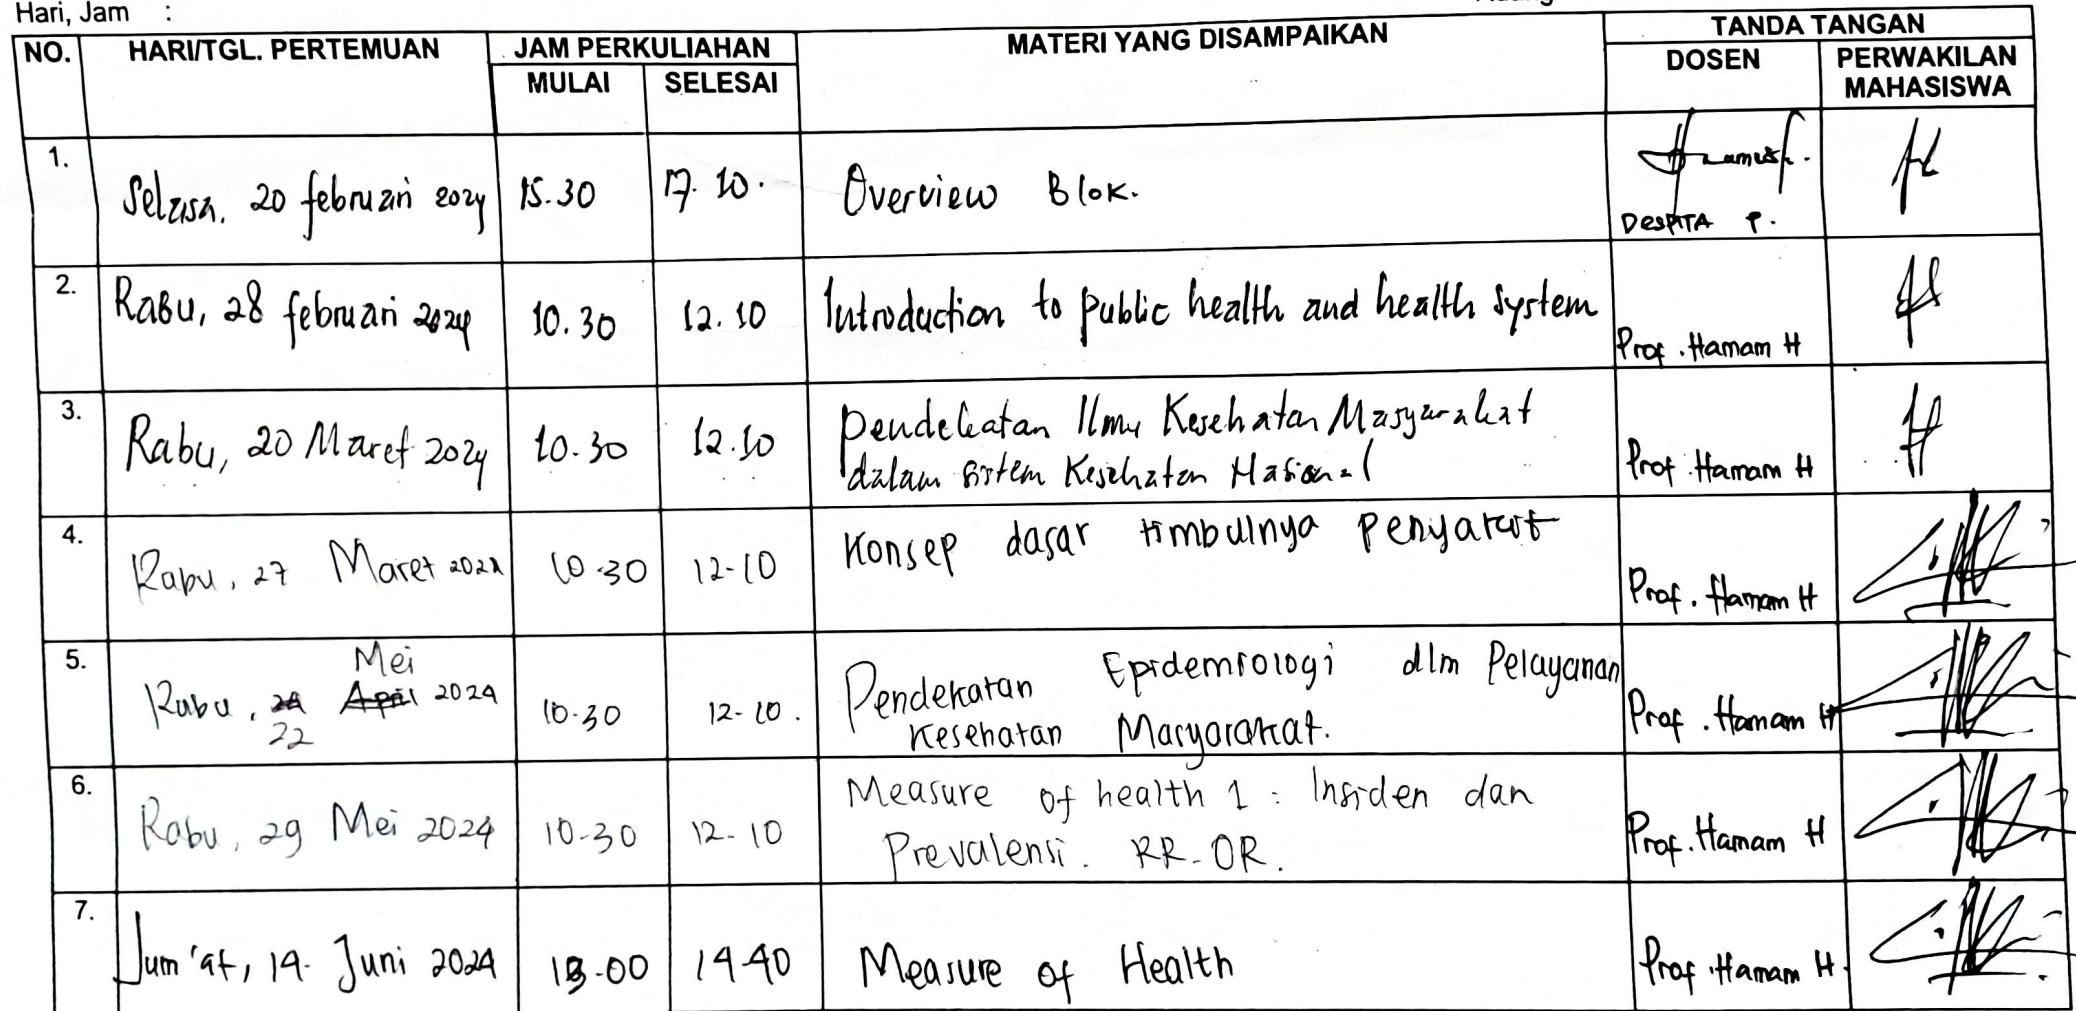 Hari, Jam :
NO. HARI/TGL. PERTEMUAN JAM PERKULIAHAN MATERI YANG DISAMPAIKAN TANDA TANGAN
MULAI SELESAI DOSEN PERWAKILAN MAHASISWA
1. Selasa, 20 februari 2024 15.30 17.10. Overview Blok. DESPITA P.
2. Rabu, 28 februari 2024 10.30 12.10 Introduction to public health and health system Prof. Hamam H
3. Rabu, 20 Maret 2024 10.30 12.10 Pendekatan Ilmu Kesehatan Masyarakat
dalam sistem Kesehatan Nasional Prof Hamam H
4. Rabu, 27 Maret 2024 10-30 12-10 Konsep dasar timbulnya Penyakit Prof. Hamam H
5. Rabu, 22 Mei 2024 10-30 12-10. Pendekatan Epidemiologi dlm Pelayanan
Kesehatan Masyarakat. Prof. Hamam H
6. Rabu, 29 Mei 2024 10-30 12-10 Measure of health 1 : Insiden dan
Prevalensi. RR-OR. Prof. Hamam H
7. Jum'at, 14. Juni 2024 13-00 14-40 Measure of Health Prof. Hamam H.